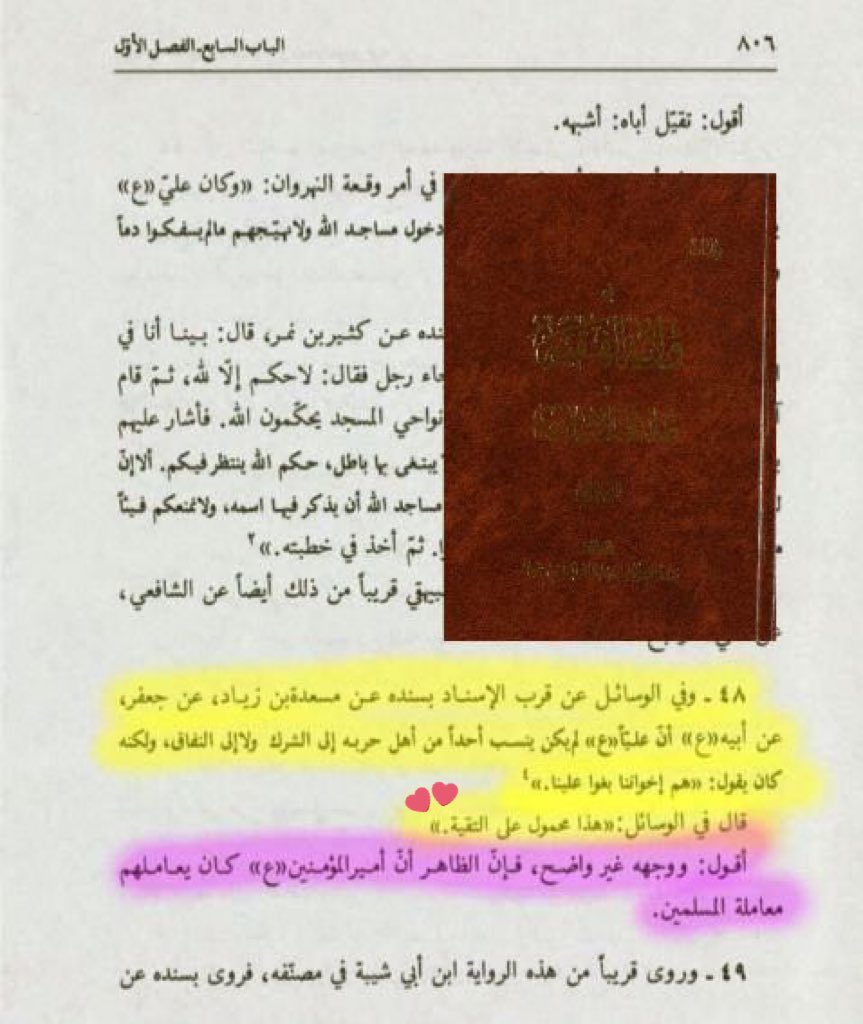 ٨٠٦
الباب السابع ـ الفصل الأوّل
أقول: تقيّل أباه: أشبهه.
في أمر وقعة النهروان: «وكان عليّ «ع»
دخول مساجد الله ولايهيّجهم مالم يسفكوا دماً
عن كثيربن نمر، قال: بينا أنا في
رجل فقال: لاحكم إلّا لله، ثمّ قام
نواحي المسجد يحكّمون الله. فأشار عليهم
يبتغى بها باطل، حكم الله ينتظر فيكم. ألا إنّ
مساجد الله أن يذكر فيها اسمه، ولانمنعكم فيئاً
ثمّ أخذ في خطبته.»٢
قريباً من ذلك أيضاً عن الشافعي،
٤٨ ـ وفي الوسائل عن قرب الإسناد بسنده عن مسعدةبن زياد، عن جعفر،
عن أبيه «ع» أنّ عليّاً «ع» لم يكن ينسب أحداً من أهل حربه إلى الشرك ولا إلى النفاق، ولكنه
كان يقول: «هم إخواننا بغوا علينا.»٤
قال في الوسائل: «هذا محمول على التقية.»
أقول: ووجهه غير واضح، فإنّ الظاهر أنّ أميرالمؤمنين «ع» كان يعاملهم
معاملة المسلمين.
٤٩ ـ وروى قريباً من هذه الرواية ابن أبي شيبة في مصنّفه، فروى بسنده عن